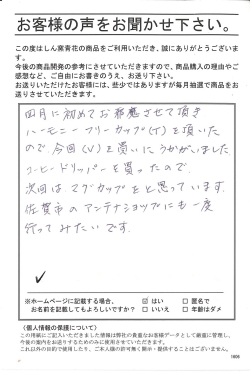 お客様の声をお聞かせ下さい。
この度はしん窯青花の商品をご利用いただき、誠にありがとうございます。
今後の商品開発の参考にさせていただきますので、商品購入の理由やご感想など、ご自由にお書きのうえ、お送り下さい。
お送りいただけたお客様には、些少ではありますが毎月抽選で商品をお送りさせていただきます。
四月に初めてお邪魔させて頂き
ハーモニーフリーカップ(T)を頂いた
ので今回(V)を買いにうかがいました
コーヒードリッパーを買ったので
次回はマグカップをと思っています
佐賀市のアンテナショップにも一度
行ってみたいです.
✓
※ホームページに記載する場合、 ☑ はい □ 匿名で
お名前を記載してもよろしいですか? □ いいえ □ 年齢はダメ
〈個人情報の保護について〉
この用紙にご記入いただきました情報は弊社の貴重なお客様データとして厳重に管理し、
今後の案内をお送りするためのみに使用させていただきます。
これ以外の目的で使用したり、ご本人様の許可無く開示・提供することはございません。